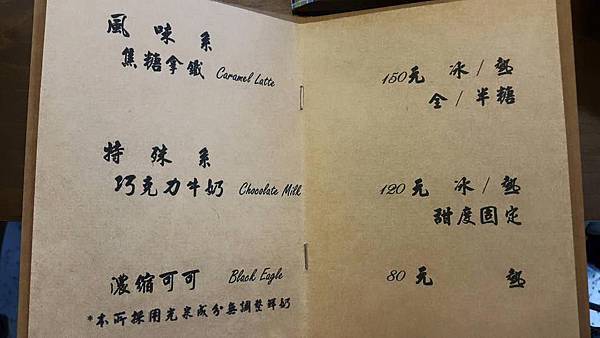 風味系
焦糖拿鐵 Caramel Latte 150元 冰/熱
全/半糖
特殊系
巧克力牛奶 Chocolate Milk 120元 冰/熱
甜度固定
濃縮可可 Black Eagle 80元 熱
*本所採用光泉成分無調整鮮奶